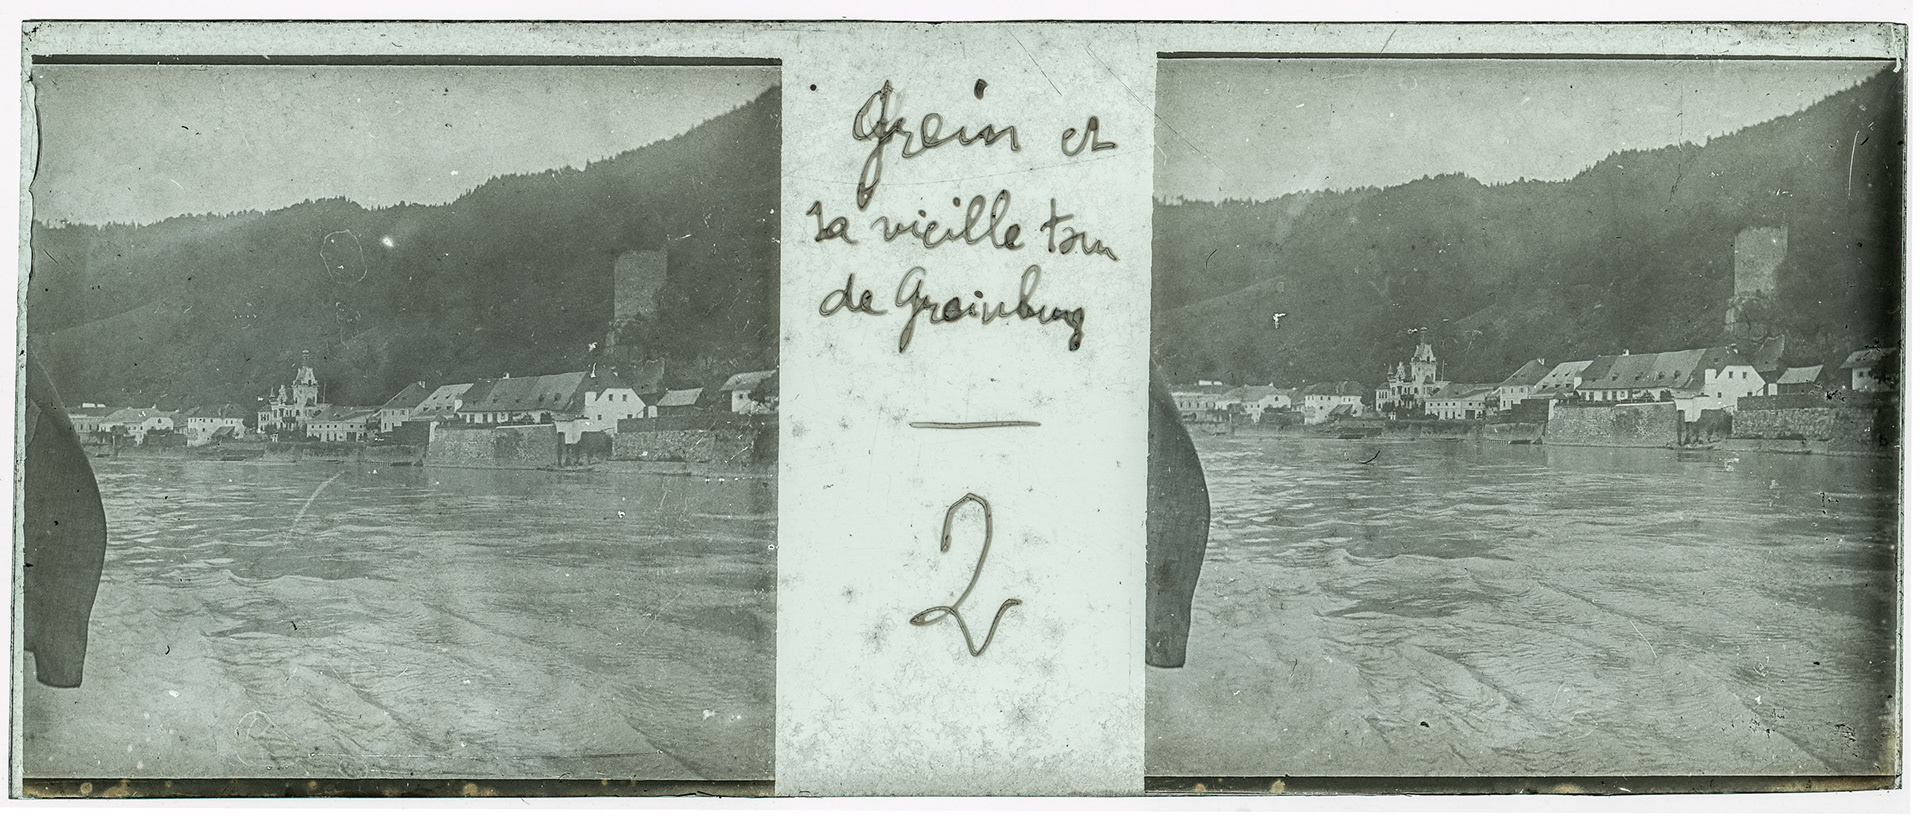 Grein et
la vieille tour
de Greinburg
2